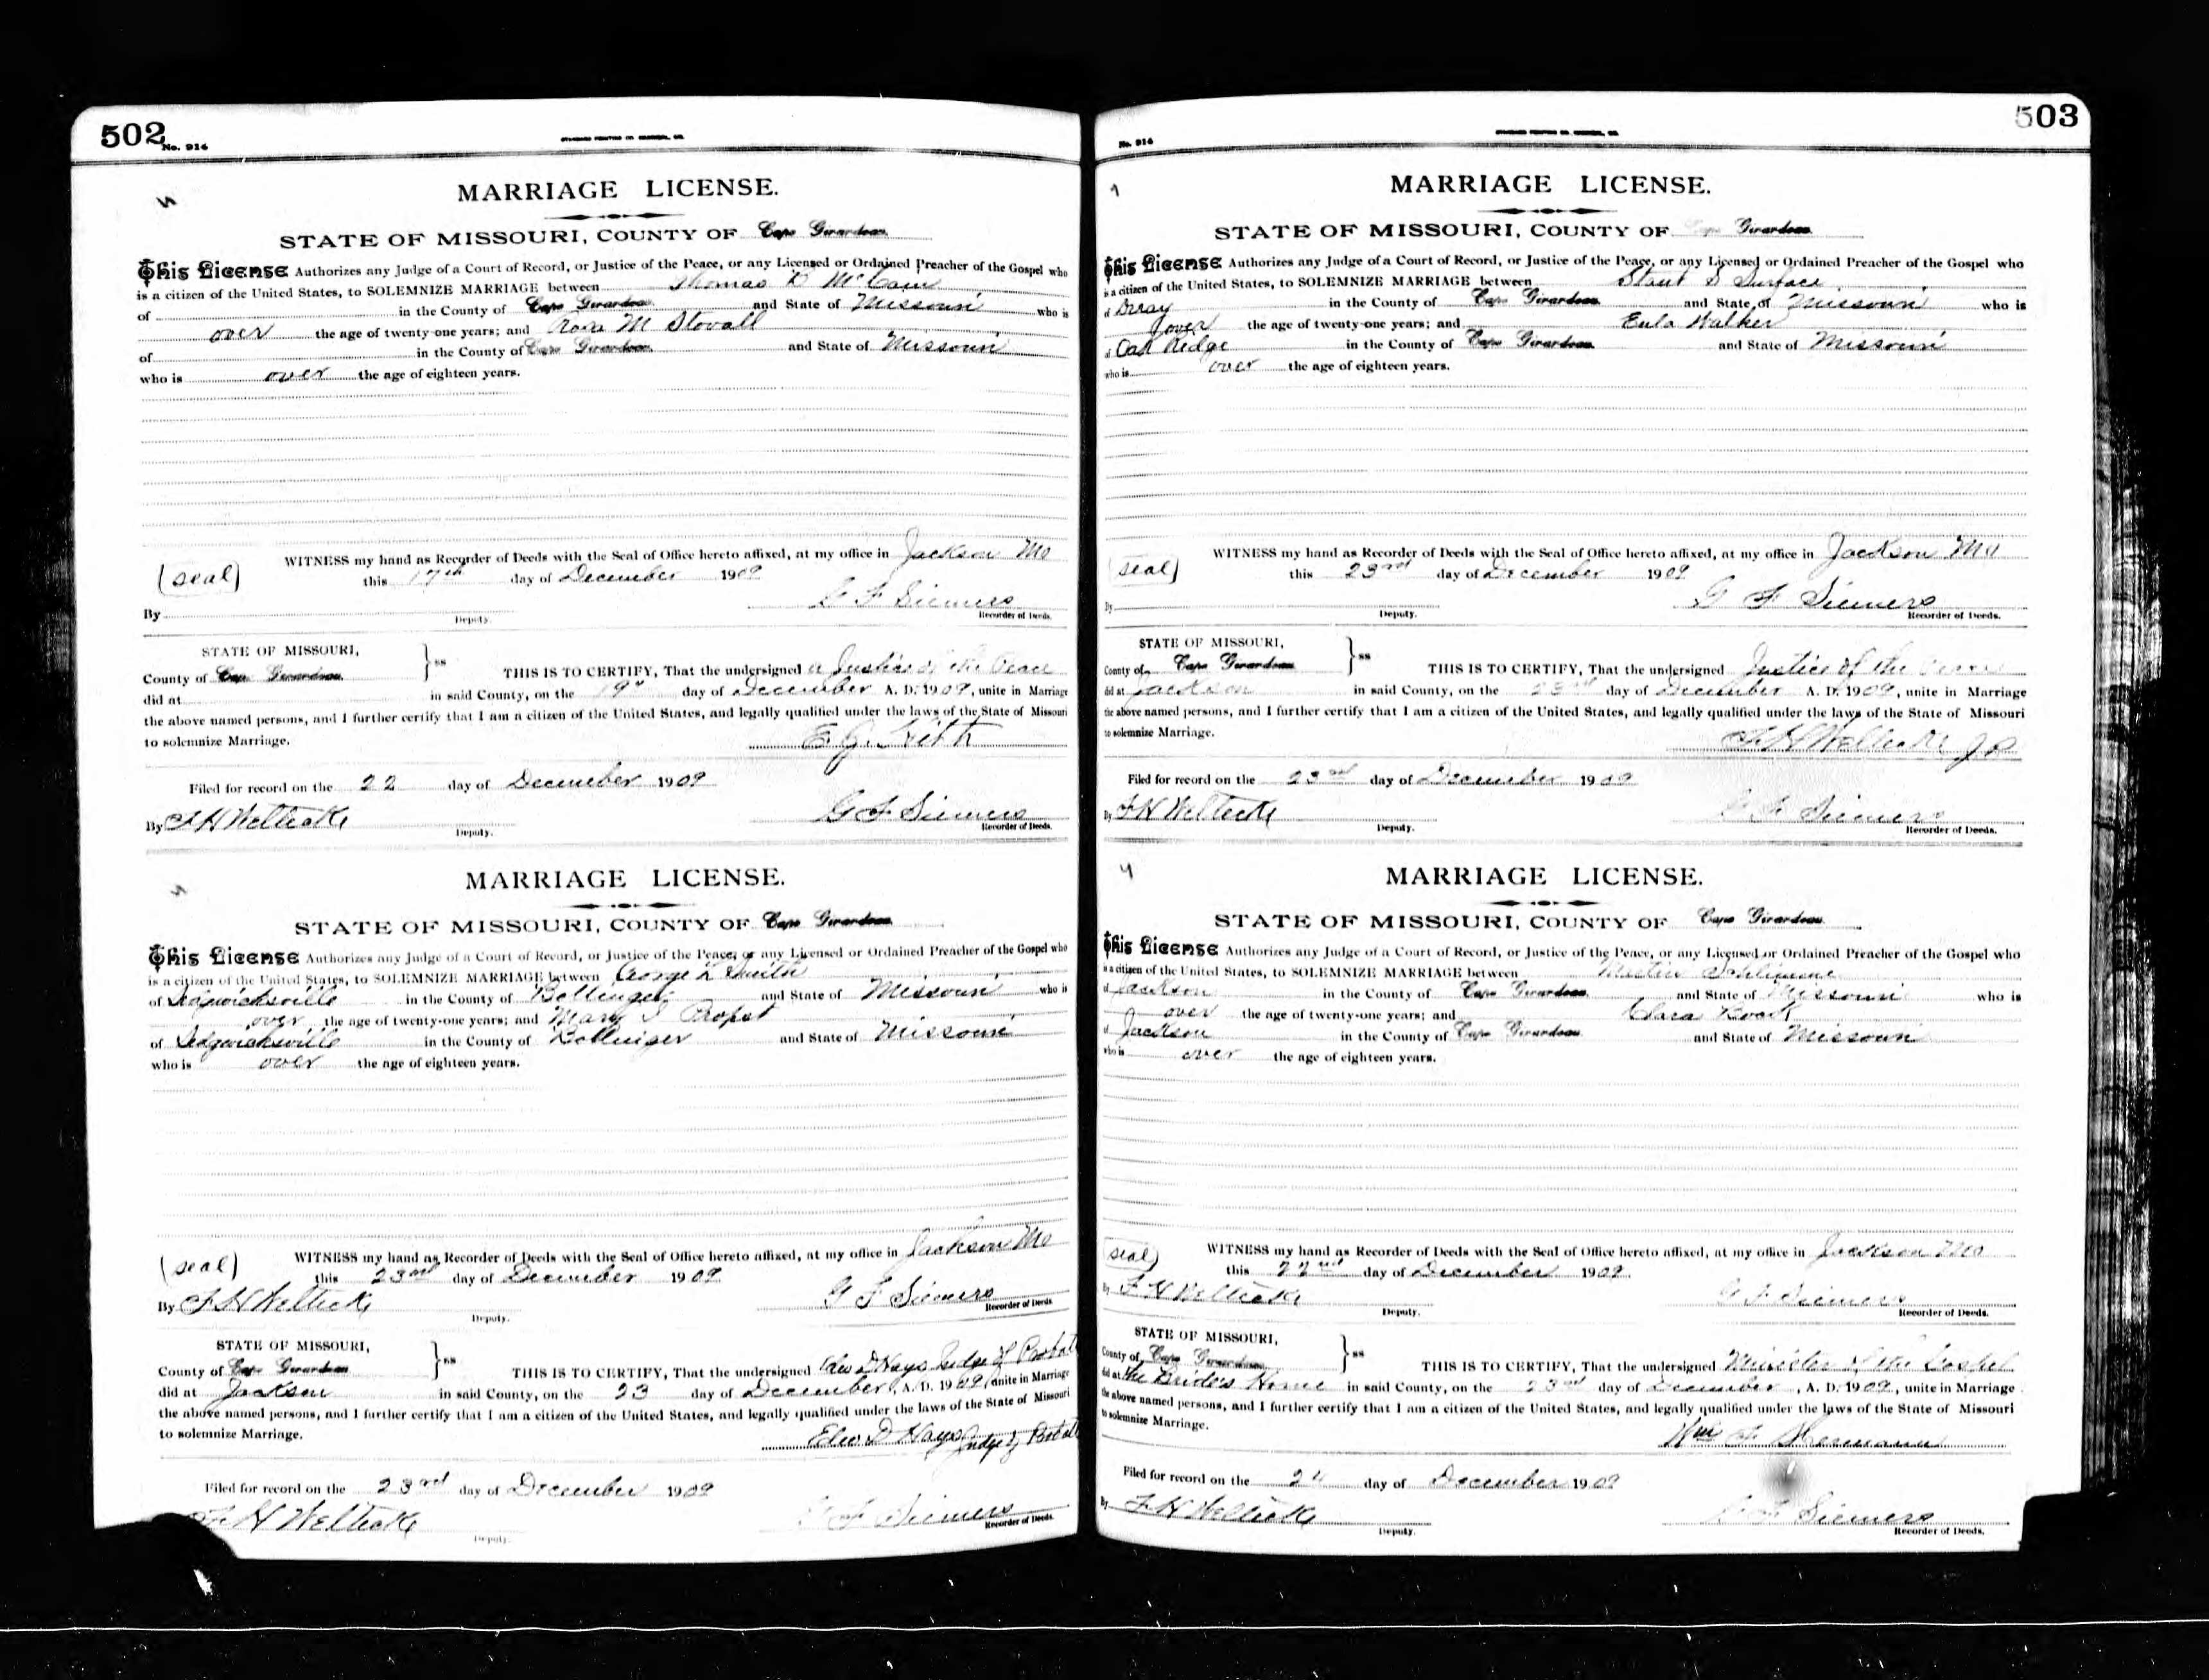 502
No. 914
MARRIAGE LICENSE.
STATE OF MISSOURI, COUNTY OF Cape Girardeau
This License Authorizes any Judge of a Court of Record, or Justice of the Peace, or any Licensed or Ordained Preacher of the Gospel who
is a citizen of the United States, to SOLEMNIZE MARRIAGE between Thomas D McCain
of in the County of Cape Girardeau and State of Missouri who is
over the age of twenty-one years; and Rosa M Stovall
of in the County of Cape Girardeau and State of Missouri
who is over the age of eighteen years.
WITNESS my hand as Recorder of Deeds with the Seal of Office hereto affixed, at my office in Jackson Mo
(seal) this 17th day of December 1909
G F Siemers
By Deputy. Recorder of Deeds.
STATE OF MISSOURI,
County of Cape Girardeau } ss THIS IS TO CERTIFY, That the undersigned a Justice of the Peace
did at in said County, on the 19th day of December A. D. 1909, unite in Marriage
the above named persons, and I further certify that I am a citizen of the United States, and legally qualified under the laws of the State of Missouri
to solemnize Marriage. E. G. Kith
Filed for record on the 22 day of December 1909
By F H Weltecke Deputy. G F Siemers Recorder of Deeds.
MARRIAGE LICENSE.
STATE OF MISSOURI, COUNTY OF Cape Girardeau
This License Authorizes any Judge of a Court of Record, or Justice of the Peace, or any Licensed or Ordained Preacher of the Gospel who
is a citizen of the United States, to SOLEMNIZE MARRIAGE between George L Smith
of Sedgwicksville in the County of Bollinger and State of Missouri who is
over the age of twenty-one years; and Mary I Probst
of Sedgwicksville in the County of Bollinger and State of Missouri
who is over the age of eighteen years.
WITNESS my hand as Recorder of Deeds with the Seal of Office hereto affixed, at my office in Jackson Mo
(seal) this 23rd day of December 1909
By F H Weltecke Deputy. G F Siemers Recorder of Deeds.
STATE OF MISSOURI,
County of Cape Girardeau } ss THIS IS TO CERTIFY, That the undersigned Edw D Hays Judge of Probate
did at Jackson in said County, on the 23 day of December, A. D. 1909, unite in Marriage
the above named persons, and I further certify that I am a citizen of the United States, and legally qualified under the laws of the State of Missouri
to solemnize Marriage. Edw D Hays Judge of Probate
Filed for record on the 23rd day of December 1909
F H Weltecke Deputy. G F Siemers Recorder of Deeds.
503
No. 914
MARRIAGE LICENSE.
STATE OF MISSOURI, COUNTY OF Cape Girardeau
This License Authorizes any Judge of a Court of Record, or Justice of the Peace, or any Licensed or Ordained Preacher of the Gospel who
is a citizen of the United States, to SOLEMNIZE MARRIAGE between Stout S Surface
of in the County of Cape Girardeau and State of Missouri who is
over the age of twenty-one years; and Eula Walker
of Oak Ridge in the County of Cape Girardeau and State of Missouri
who is over the age of eighteen years.
WITNESS my hand as Recorder of Deeds with the Seal of Office hereto affixed, at my office in Jackson Mo
(seal) this 23rd day of December 1909
G F Siemers
By Deputy. Recorder of Deeds.
STATE OF MISSOURI,
County of Cape Girardeau } ss THIS IS TO CERTIFY, That the undersigned Justice of the Peace
did at Jackson in said County, on the 23rd day of December A. D. 1909, unite in Marriage
the above named persons, and I further certify that I am a citizen of the United States, and legally qualified under the laws of the State of Missouri
to solemnize Marriage. F H Weltecke J P
Filed for record on the 23rd day of December 1909
By F H Weltecke Deputy. G F Siemers Recorder of Deeds.
MARRIAGE LICENSE.
STATE OF MISSOURI, COUNTY OF Cape Girardeau
This License Authorizes any Judge of a Court of Record, or Justice of the Peace, or any Licensed or Ordained Preacher of the Gospel who
is a citizen of the United States, to SOLEMNIZE MARRIAGE between
of Jackson in the County of Cape Girardeau and State of Missouri who is
over the age of twenty-one years; and Clara
of Jackson in the County of Cape Girardeau and State of Missouri
who is over the age of eighteen years.
WITNESS my hand as Recorder of Deeds with the Seal of Office hereto affixed, at my office in Jackson Mo
(seal) this 22nd day of December 1909
By F H Weltecke Deputy. G F Siemers Recorder of Deeds.
STATE OF MISSOURI,
County of Cape Girardeau } ss THIS IS TO CERTIFY, That the undersigned Minister of the Gospel
did at the Bride's Home in said County, on the 23rd day of December, A. D. 1909, unite in Marriage
the above named persons, and I further certify that I am a citizen of the United States, and legally qualified under the laws of the State of Missouri
to solemnize Marriage. Wm F Hermann
Filed for record on the 24 day of December 1909
By F H Weltecke Deputy. G F Siemers Recorder of Deeds.